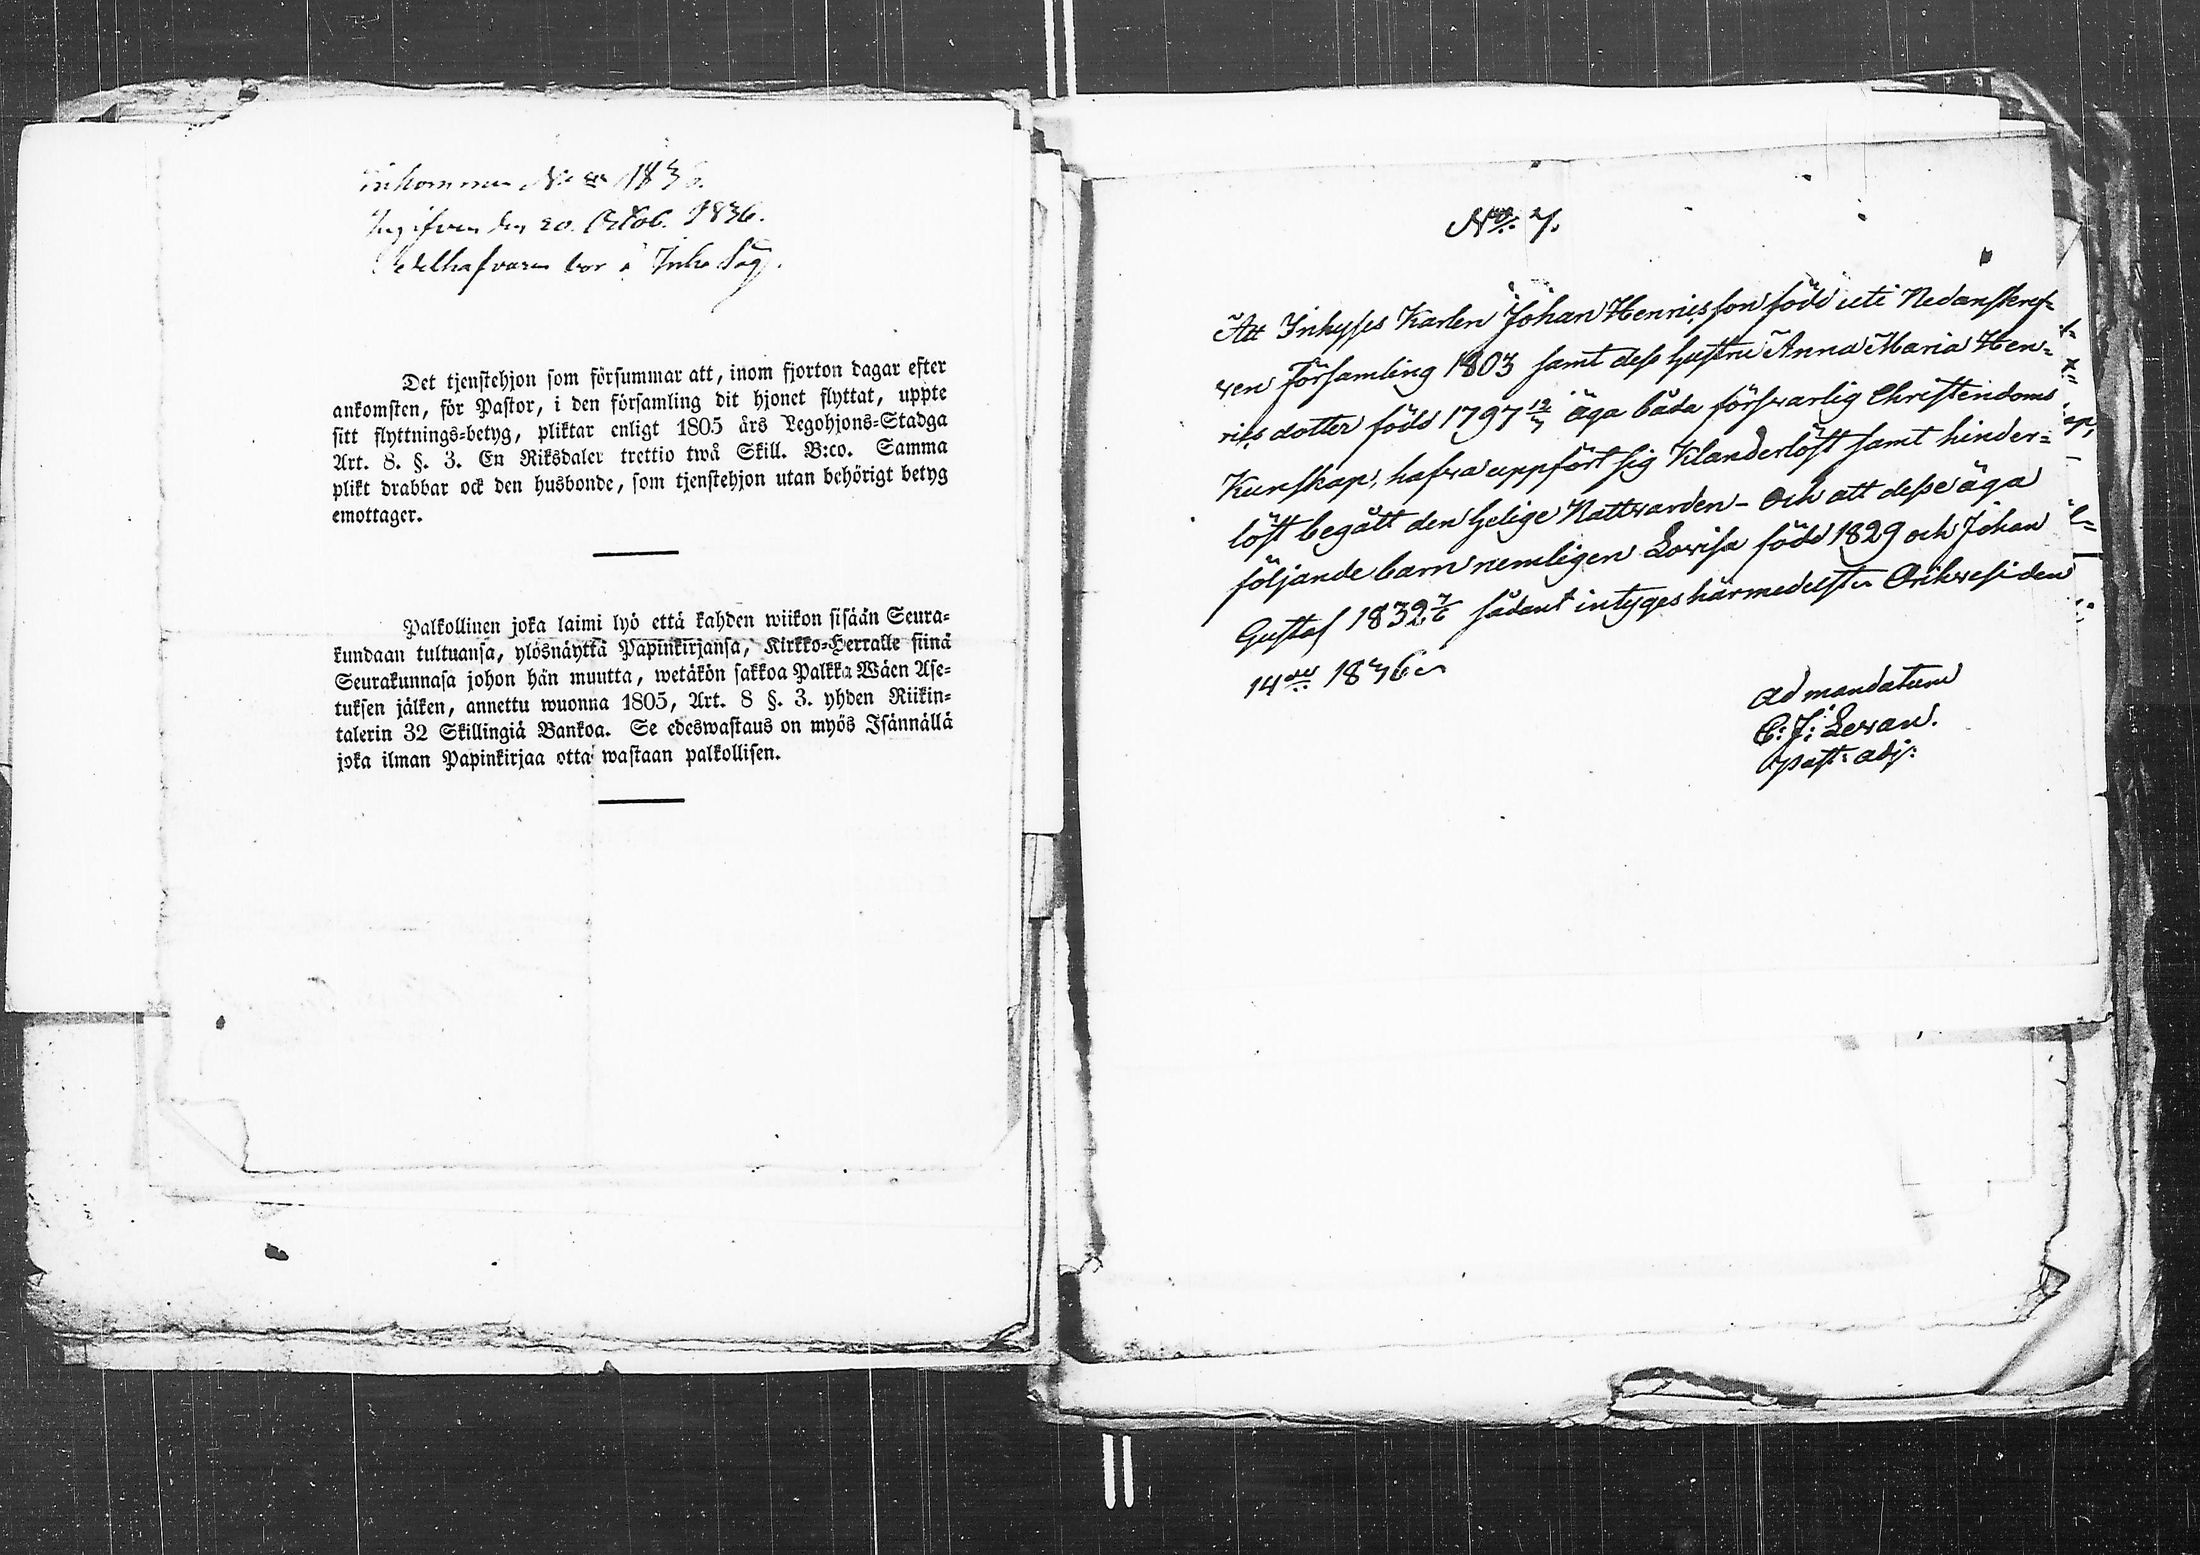 Inkommen No 1836.
Ingifven den 20. Octob. 1836.
Sedelhafvaren bor å Inho Såg.
Det tjenstehjon som försummar att, inom fjorton dagar efter
ankomsten, för Pastor, i den församling dit hjonet flyttat, uppte
sitt flyttnings=betyg, pliktar enligt 1805 års Legohjons=Stadga
Art. 8. §. 3. En Riksdaler trettio twå Skill. B:co. Samma
plikt drabbar ock den husbonde, som tjenstehjon utan behörigt betyg
emottager.
Palkollinen joka laimi lyö että kahden wiikon sisään Seura=
kundaan tultuansa, ylösnäyttä Papinkirjansa, Kirkko=Herralle siinä
Seurakunnasa johon hän muutta, wetäkön sakkoa Palkka Wäen Ase=
tuksen jälken, annettu wuonna 1805, Art. 8 §. 3. yhden Riikin=
talerin 32 Skillingiä Bankoa. Se edeswastaus on myös Isännällä
joka ilman Papinkirjaa otta wastaan palkollisen.
No. 7.
Att Inhyses Karlen Johan Henricsson född uti Nedanskref=
ven Församling 1803 samt dess Hustru Anna Maria Hen=
rics dotter född 1797 12/7 äga båda försvarlig Christendoms
Kunskap, hafva uppfört sig Klanderlöst samt hinder=
löst begått den Helige Nattvarden – Och att desse äga
följande barn nemligen Lovisa född 1829 och Johan
Gustaf 1832 7/6 sådant intyges härmedelst. Orihvesi den
14de 1836
ad mandatum
C: J: Levan.
past: adj: